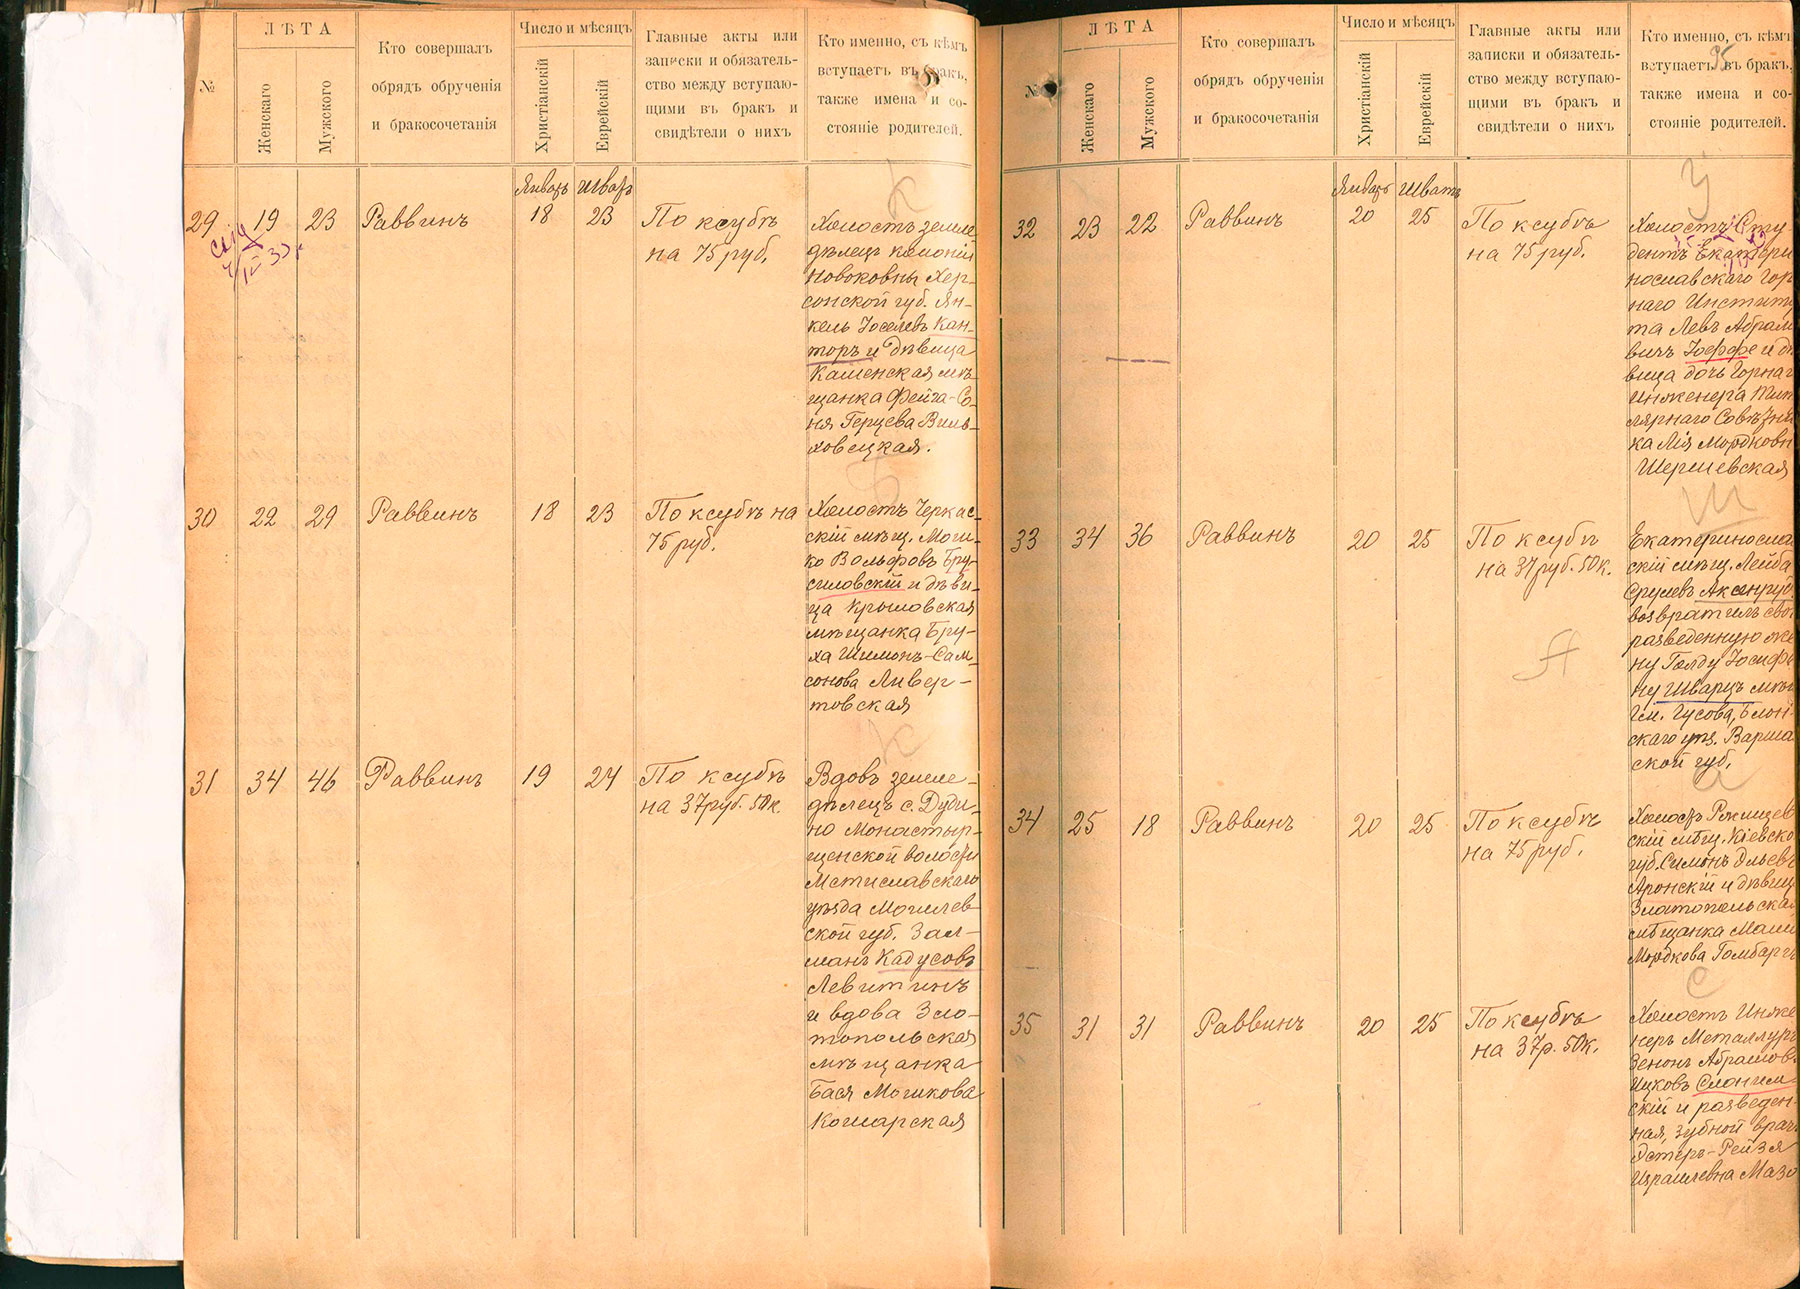 №
ЛѢТА
Женскаго
Мужского
Кто совершалъ
обрядъ обрученія
и бракосочетанія
Число и мѣсяцъ
Христіанскій
Еврейскій
Главные акты или
записки и обязатель-
ство между вступаю-
щими въ бракъ и
свидѣтели о нихъ
Кто именно, съ кѣмъ
вступаетъ въ бракъ,
также имена и со-
стояніе родителей.
Январь Шватъ
29 19 23 Раввинъ 18 23
По ксубѣ
на 75 руб.
Холостъ земле
дѣлецъ колоніи
Новоковны Хер-
сонской губ. Ян-
кель Іоселевъ Кан-
торъ и дѣвица
Каменская мѣ-
щанка Фейга-Со-
ня Герцева Виль-
ховецкая.
К
30 22 29 Раввинъ 18 23
По ксубѣ на
75 руб.
Холостъ Черкас-
скій мѣщ. Мош-
ко Вольфовъ Бру-
силовскій и дѣви-
ца Крыловская
мѣщанка Бру-
ха Шимонъ-Сам-
сонова Ливер-
товская
Б
31 34 46 Раввинъ 19 24
По ксубѣ
на 37 руб. 50 к.
Вдовъ земле-
дѣлецъ с. Дуди-
но Монастыр-
щенской волости
Мстиславскаго
уѣзда Могилев
ской губ. Зал-
манъ Кадусовъ
Левитинъ
и вдова Зло-
топольская
мѣщанка
Бася Мошкова
Кошарская
К
№
ЛѢТА
Женскаго
Мужского
Кто совершалъ
обрядъ обрученія
и бракосочетанія
Число и мѣсяцъ
Христіанскій
Еврейскій
Главные акты или
записки и обязатель-
ство между вступаю-
щими въ бракъ и
свидѣтели о нихъ
Кто именно, съ кѣмъ
вступаетъ въ бракъ,
также имена и со-
стояніе родителей.
Январь Шватъ
32 23 22 Раввинъ 20 25
По ксубѣ
на 75 руб.
Холостъ Сту
дентъ Екатери
нославскаго Гор
наго Институ
та Левъ Абрам
вичъ Іоффе и дѣ
вица дочь Горнаг
инженера Тит
лярнаго Совѣтни
ка Лія Мордковн
Шершевская
33 34 36 Раввинъ 20 25
По ксубѣ
на 37 руб. 50 к.
Екатеринослав
скій мѣщ. Лейба
Срулевъ Аксенруд
возвратилъ сво
разведенную же
ну Голду Іосифо
ну Шварцъ мѣщ
Гм. Гусова, Блон
скаго уѣз. Варша
ской губ.
Ш
А
34 25 18 Раввинъ 20 25
По ксубѣ
на 75 руб.
Холостъ Ржищев
скій мѣщ. Кіевско
губ. Симонъ Эльевъ
Аронскій и дѣвиц
Златопольска
мѣщанка Маши
Мордкова Гомбаргъ
а
35 31 31 Раввинъ 20 25
По ксубѣ
на 37 р. 50 к.
Холостъ Инже
неръ Металлург
Зенонъ Абрамов
Ицковъ Слоним-
скій и разведен-
ная, зубной врач
Эстеръ-Рейзя
Израилевна Мазо
с